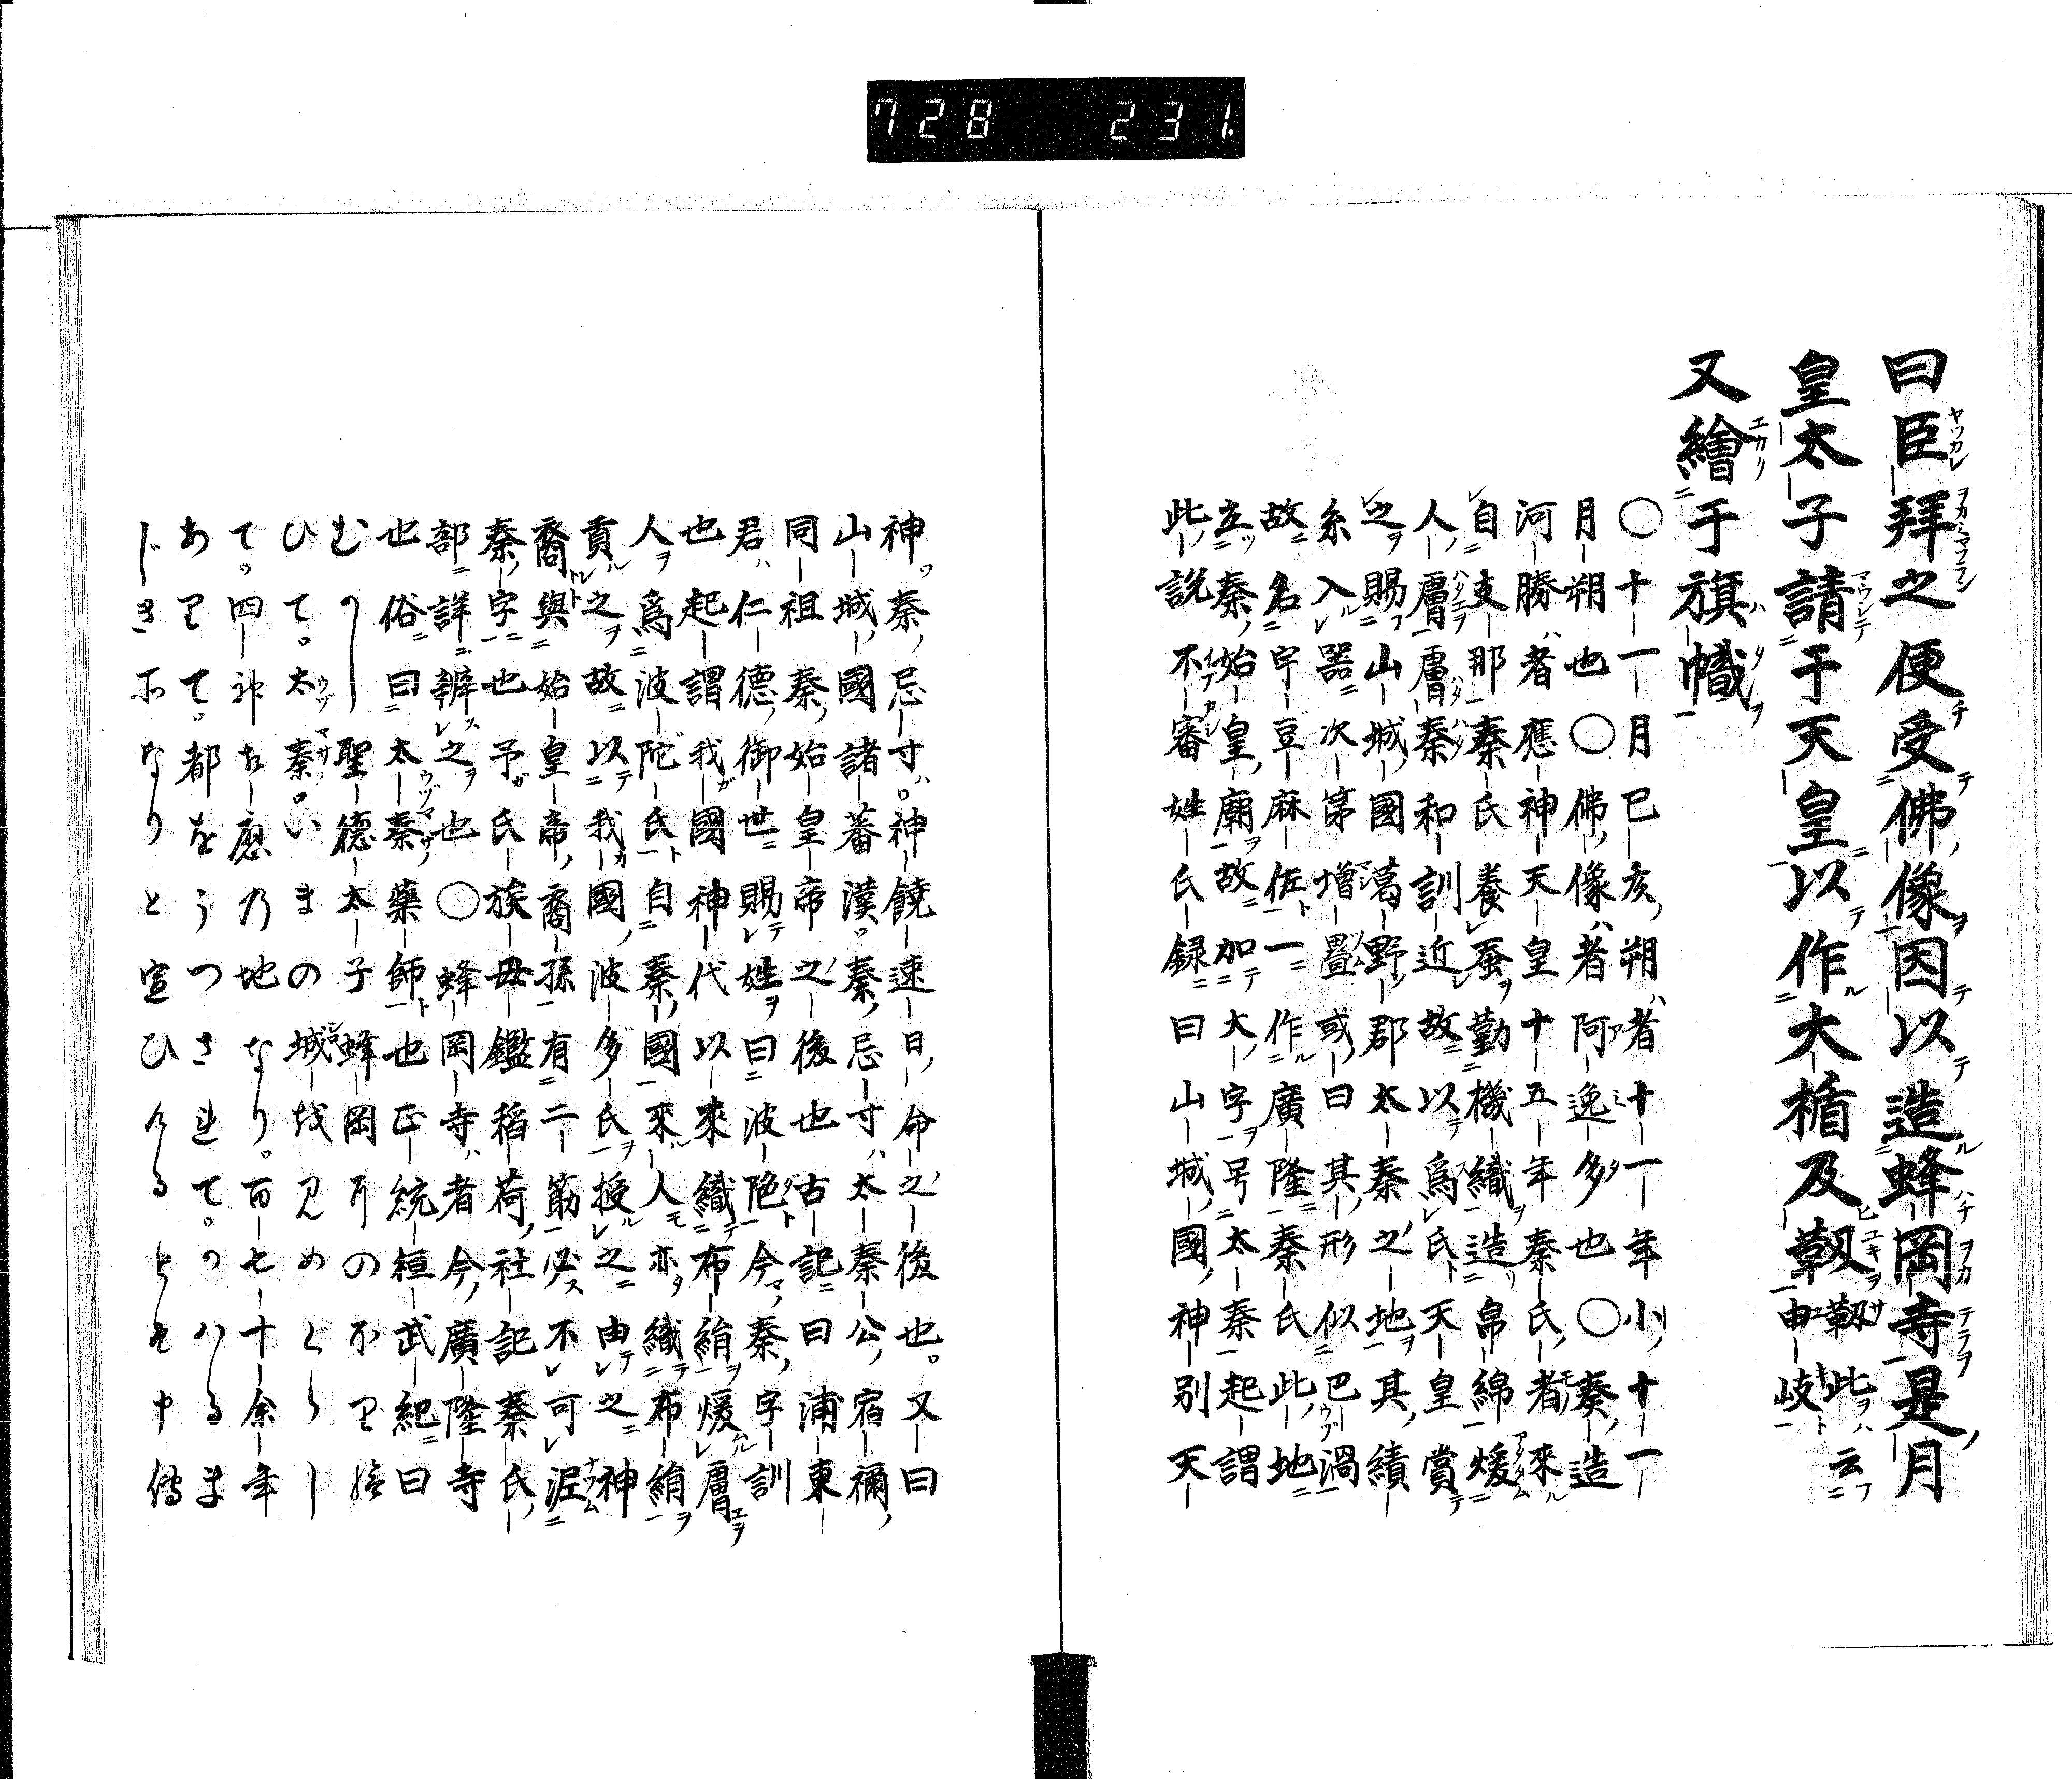 728 231.
曰臣拜之便受佛像因以造蜂岡寺是月
皇太子請于天皇以作大楯及靫靫此云
申岐
又繪于旗幟
〇十一月已亥朔者十一年小十一
月朔也〇佛像者阿逸多也〇奏造
河勝者應神天皇十五年秦氏者來
自支那秦氏養蚕勤機織造帛綿煖
人膚膚秦和訓近故以爲氏天皇賞
之賜山城國葛野郡太秦之地其績
糸入器次第增疊或曰其形似巴渦
故名宇豆麻佐一作廣隆秦氏此地
立秦始皇廟故加大字号太秦起謂
此説不審姓氏録曰山城國神別天
神秦忌寸神饒速日命之後也又曰
山城國諸蕃漢秦忌寸太秦公宿禰
同祖秦始皇帝之後也古記曰浦東
君仁德御世賜姓曰波陁今秦字訓
也起謂我國神代以來織布絹煖膚
人爲波陀氏自秦國來人亦織布絹
貢之故以我國波多氏授之由之神
裔與始皇帝裔孫有二筋必不可泥
秦字也予氏族毋鑑稻荷社記秦氏
部詳辨之也〇蜂岡寺者今廣隆寺
也俗曰太秦藥師也正統桓武紀曰
むかし聖德太子蜂岡の
ひて太秦いまの城をめぐらし
て四神相應の地なり百七十余年
ありて都をうつされてかはるま
じき所なりと宣ひけるとそ申傳